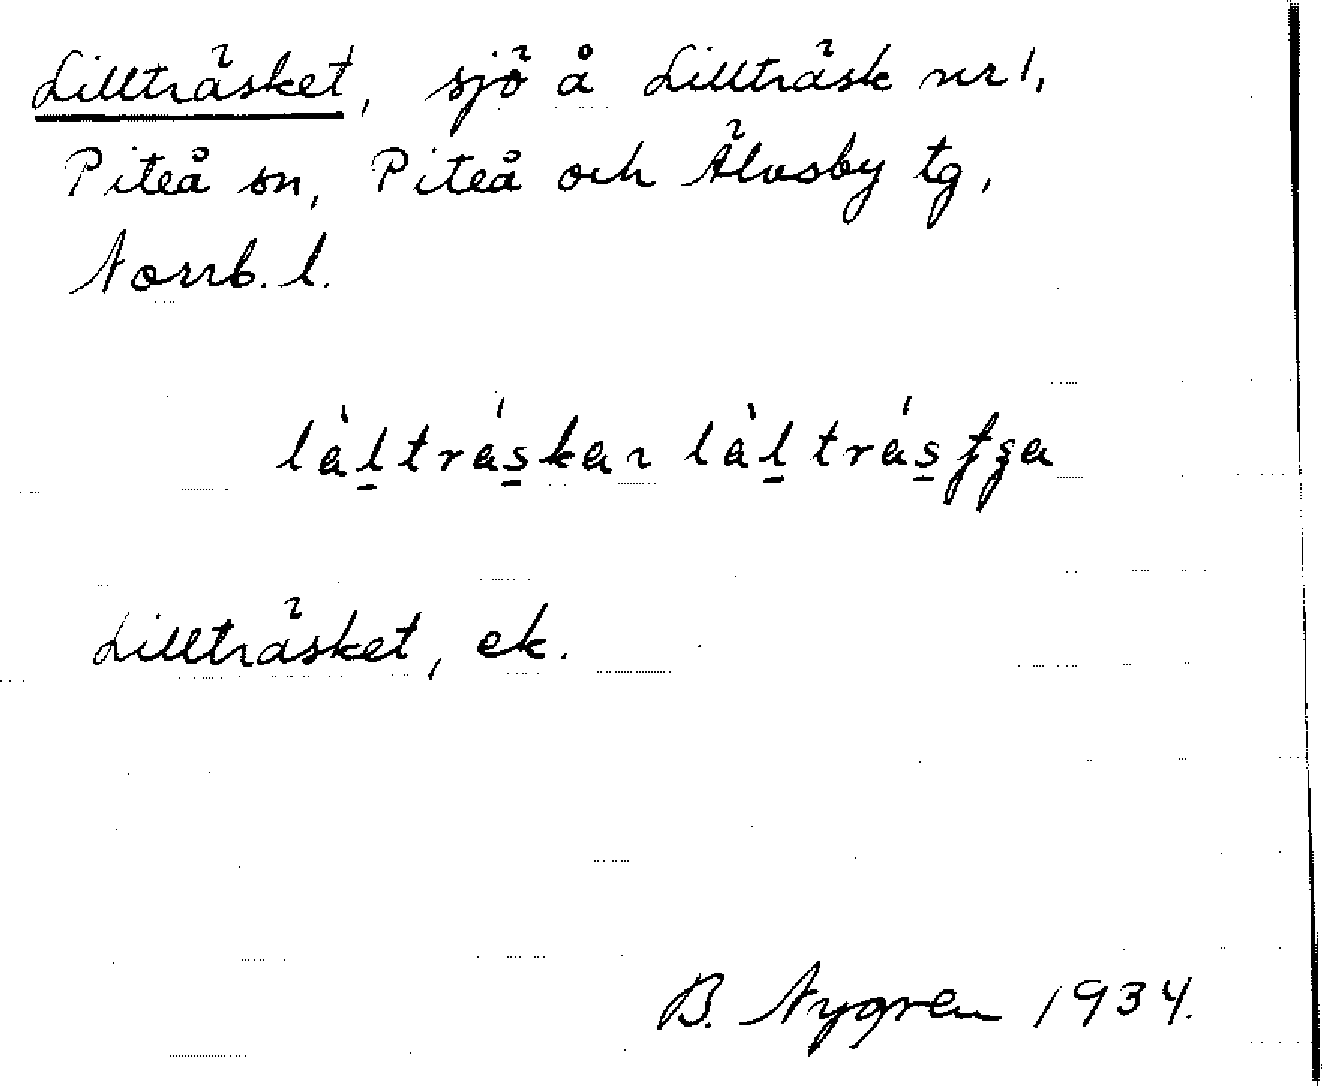 Lillträsket, sjö å Lillträsk nr 1,
Piteå sn, Piteå och Älvsby tg,
Norrb. l.
Lillträsket, ek.
B. Nygren 1934.